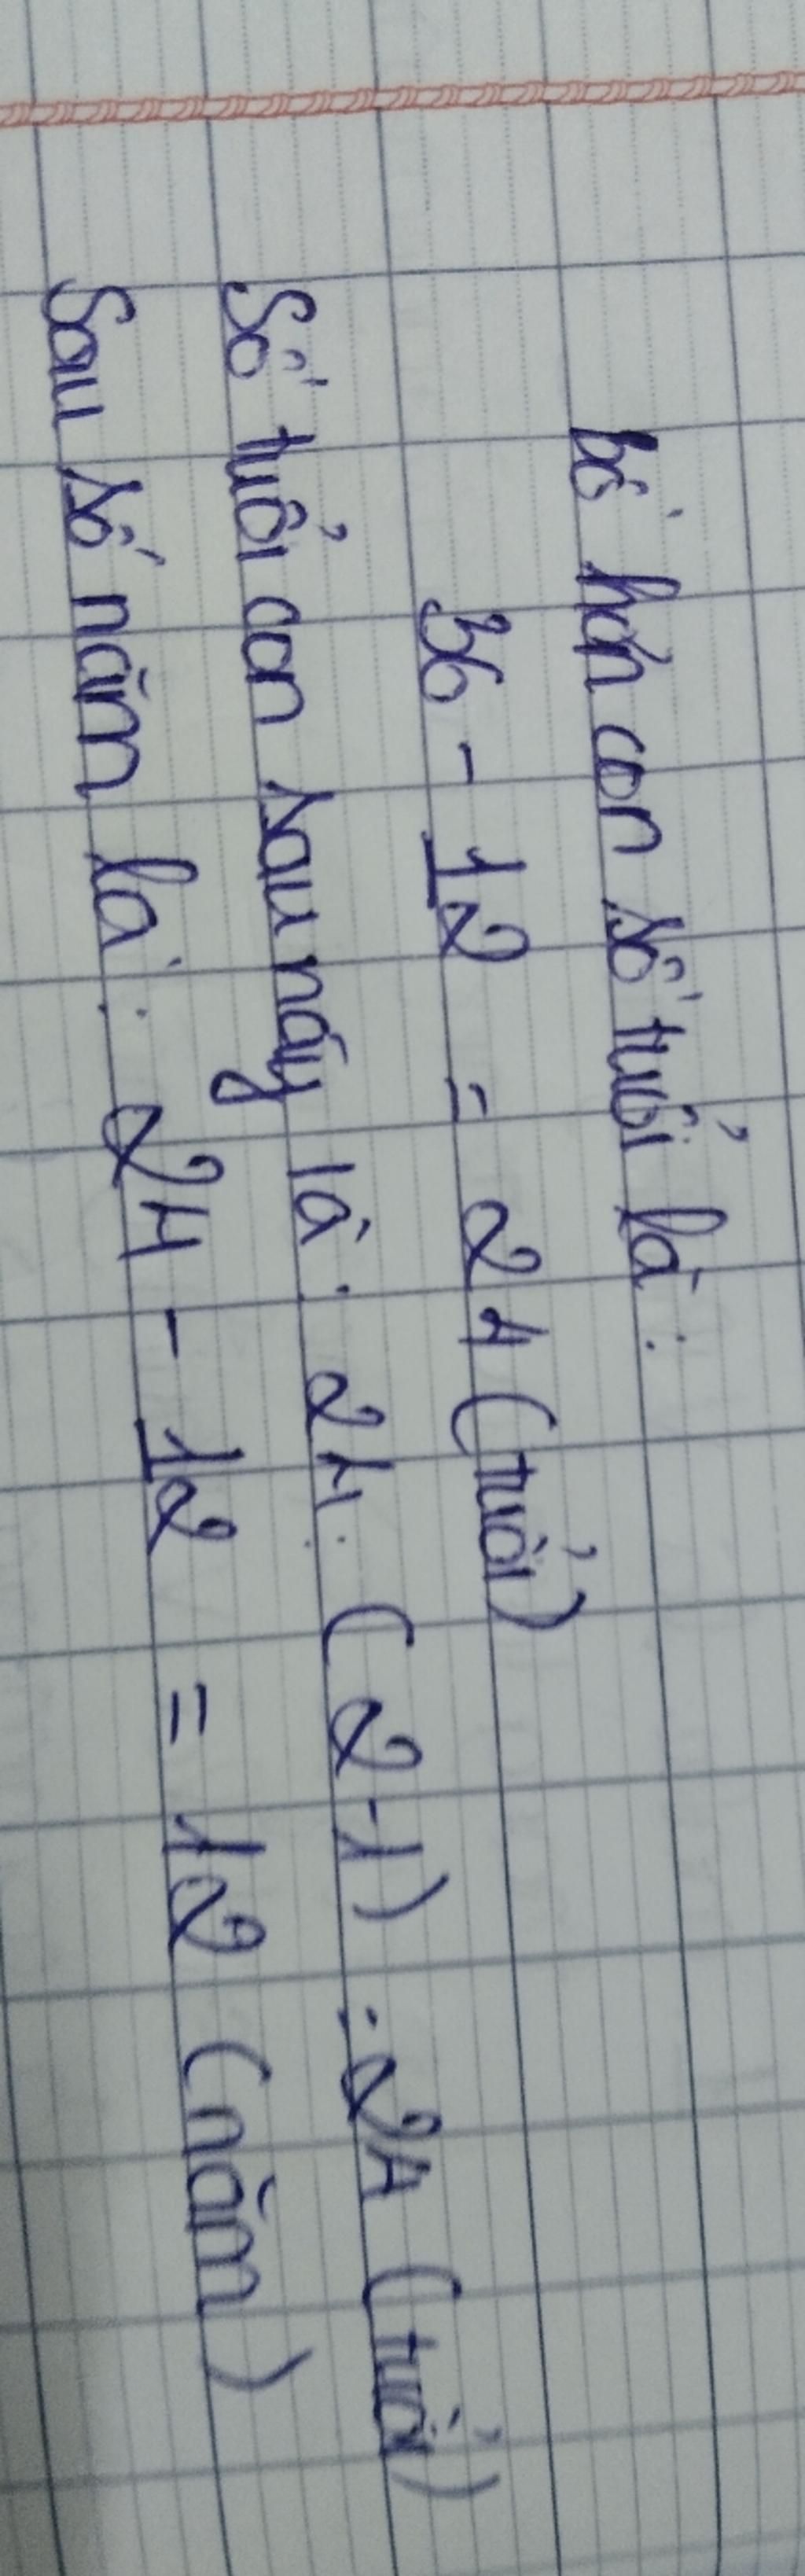 bố hơn con số tuổi là:
36 - 12 = 24 (tuổi)
Số tuổi con sau này là: 24: (2-1) = 24 (tuổi)
Sau số năm là: 24 - 12 = 12 (năm)